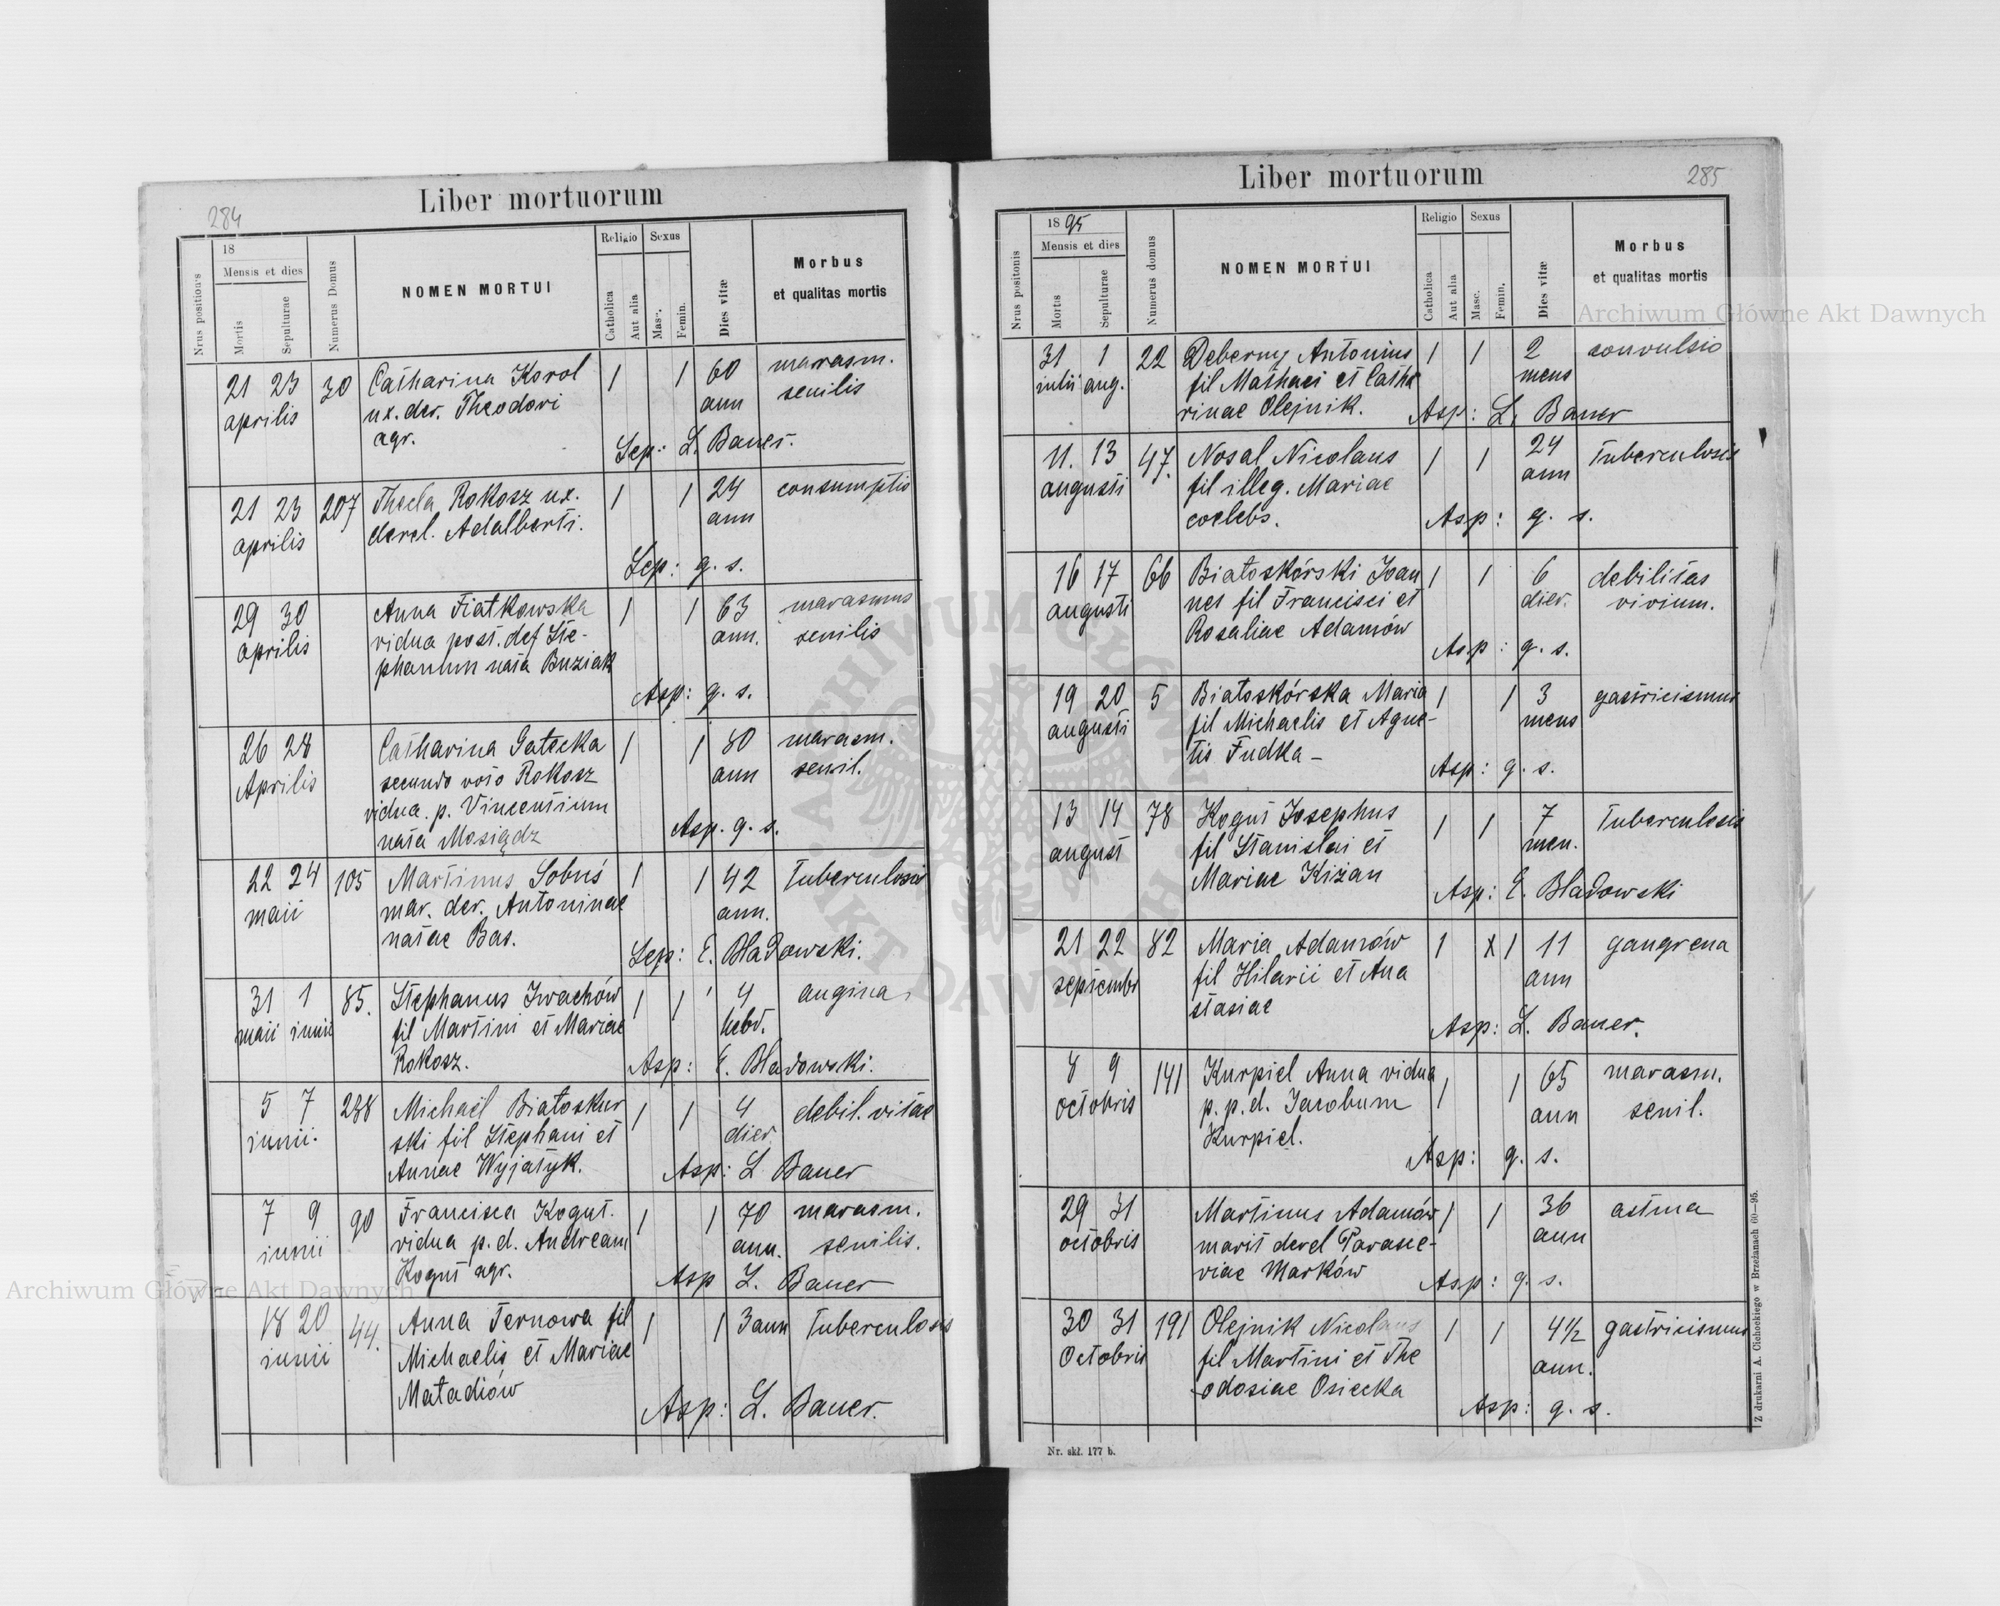 284
Liber mortuorum
Nrus positionis
18
Mensis et dies
Mortis
Sepulturae
Numerus Domus
NOMEN MORTUI
Religio
Catholica
Aut alia
Sexus
Masc.
Femin.
Dies vitæ
Morbus
et qualitas mortis
21 23 30 Catharina Korol 1 1 60 marasm.
aprilis ux. der. Theodori ann senilis
agr.
Sep: L. Bauer.
21 23 207 Thecla Rokosz ux. 1 1 24 consumptio
aprilis derel. Adalberti. ann
Sep: g. s.
29 30 Anna Fiatkowska 1 1 63 marasmus
aprilis vidua post. def Ste- ann. senilis
phanum nata Buziak
Asp: g. s.
26 28 Catharina Gatecka 1 1 80 marasm.
Aprilis secundo voto Rokosz ann senil.
vidua. p. Vincentium
nata Mosiądz Asp. g. s.
22 24 105 Martinus Sobuś 1 1 42 Tuberculosis
maii mar. der. Antoninae ann.
natae Bas.
Sep: E. Bladowski.
31 1 85. Stephanus Iwachów 1 1 4 angina
maii iunii fil Martini et Mariae hebd.
Rokosz. Asp: E. Bladowski.
5 7 288 Michael Biatoskur 1 1 4 debil. vitae
iunii. ski fil Stephani et dier
Annae Wyjatyk. Asp: L Bauer
7 9 90 Francisca Kogut. 1 1 70 marasm.
iunii vidua p. d. Andream ann. senilis.
Kogut agr. Asp L. Bauer
18 20 44. Anna Ternowa fil 1 1 3 ann Tuberculosis
iunii Michaelis et Mariae
Matadiów
Asp: L. Bauer.
285
Liber mortuorum
Nrus positonis
1895
Mensis et dies
Mortis
Sepulturae
Numerus domus
NOMEN MORTUI
Religio
Catholica
Aut alia
Sexus
Masc.
Femin.
Dies vitæ
Morbus
et qualitas mortis
31 1 22 Deberny Antonius 1 1 2 convulsio
iulii aug. fil Mathaei et Catha mens
rinae Olejnik. Asp: L. Bauer
11. 13 47. Nosal Nicolaus 1 1 24 Tuberculosis
augusti fil illeg. Mariae ann
coelebs. Asp: g. s.
16 17 66 Biatoskórski Ioan 1 1 6 debilitas
augusti nes fil Francisci et dier. virium.
Rosaliae Adamów Asp: g. s.
19 20 5 Biatoskórska Maria 1 1 3 gastricismus
augusti fil Michaelis et Agne- mens
tis Fudka - Asp: g. s.
13 14 78 Kogut Josephus 1 1 7 Tuberculosis
august fil Stanislai et men.
Mariae Kiżan Asp: E. Bladowski
21 22 82 Maria Adamów 1 X 1 11 gangrena
septembr fil Hilarii et Ana ann
stasiae Asp: L. Bauer.
8 9 141 Kurpiel Anna vidua 1 1 65 marasm.
octobris p. p. d. Jacobum ann senil.
Kurpiel. Asp: g. s.
29 31 Martinus Adamów 1 1 36 astma
octobris marit derel Parasce- ann
viae Marków Asp: g. s.
30 31 191 Olejnik Nicolaus 1 1 4 1/2 gastricismus
Octobris fil Martini et The ann.
odosiae Osiecka
Asp: g. s.
Nr. skł. 177 b.
Z drukarni A. Cichockiego w Brzeżanach 60—95.
Archiwum Główne Akt Dawnych
Archiwum Główne Akt Dawnych
ARCHIWUM GŁÓWNE AKT DAWNYCH